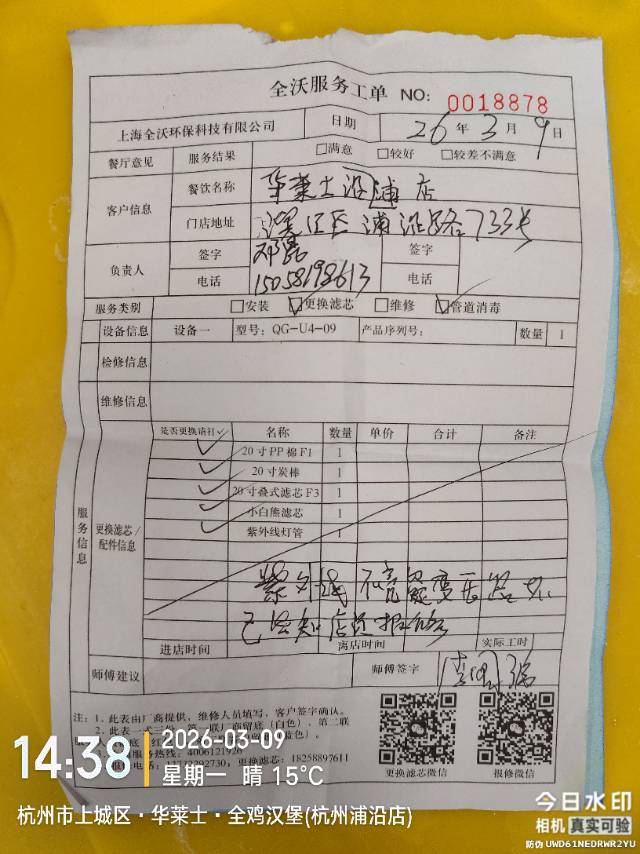 全沃服务工单 NO: 0018878
上海全沃环保科技有限公司 日期 26年3月9日
餐厅意见 服务结果 □满意 □较好 □较差不满意
客户信息 餐饮名称 华莱士沿浦店
门店地址 滨江区浦沿路733号
负责人 签字 邓磊 签字
电话 15058198613 电话
服务类别 □安装 ☑更换滤芯 □维修 ☑管道消毒
设备信息 设备一 型号: QG-U4-09 产品序列号: 数量 1
检修信息
维修信息
服务信息 更换滤芯/配件信息
是否更换请打✓ 名称 数量 单价 合计 备注
✓ 20寸PP棉F1 1
✓ 20寸炭棒 1
✓ 20寸叠式滤芯F3 1
✓ 小白熊滤芯 1
✓ 紫外线灯管 1
紫外线不亮 变压器坏
已告知店还报修
进店时间 离店时间 实际工时
师傅建议 师傅签字
注: 1. 此表由厂商提供, 维修人员填写, 客户签字确认。
2. 此表一式三份, 第一联厂商留底(白色), 第二联
服务热线: 4006121926
更换滤芯: 18258897611
更换滤芯微信 报修微信
14:38 2026-03-09
星期一 晴 15℃
杭州市上城区·华莱士·全鸡汉堡(杭州浦沿店)
今日水印
相机 真实可验
防伪 UWD61NEDRWR2YU